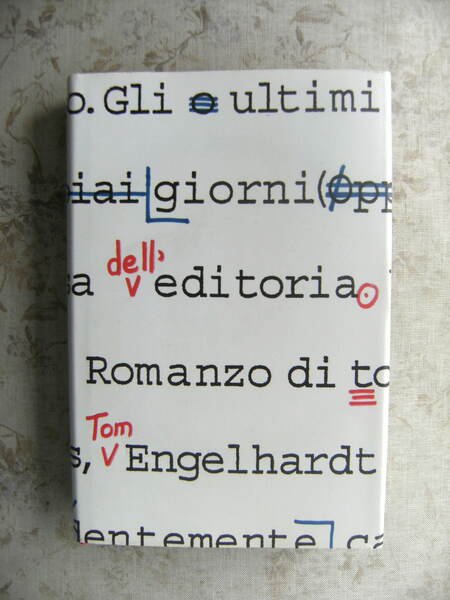 o. Gli o ultimi
iai giorni (Opp
a dell' editoria.
Romanzo di to
s, Tom Engelhardt
dentemente ca